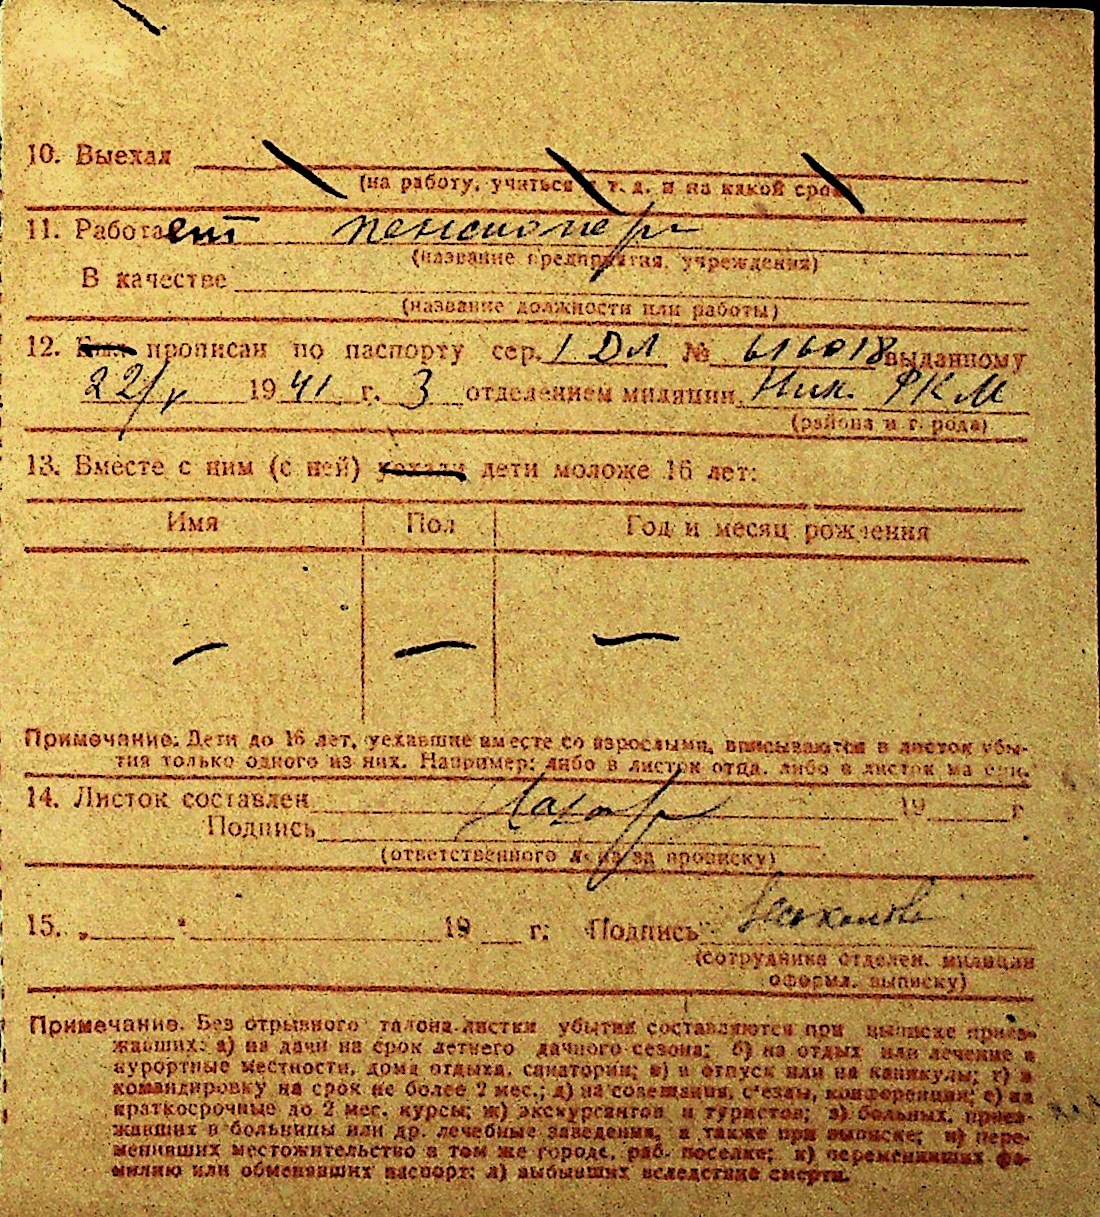 10. Выехал
(на работу, учиться и т. д. и на какой срок)
11. Работает пенсионер
(название предприятия, учреждения)
В качестве
(название должности или работы)
12. Был прописан по паспорту сер. 1 ДЛ № 616018 выданному
22/V 1941 г. 3 отделением милиции Ник. РКМ
(района и города)
13. Вместе с ним (с ней) уехали дети моложе 16 лет:
Имя Пол Год и месяц рождения
— — —
Примечание: Дети до 16 лет, уехавшие вместе со взрослыми, вписываются в листок убы-
тия только одного из них. Например: либо в листок отца, либо в листок матери.
14. Листок составлен 19 г
Подпись
(ответственного лица за прописку)
15. „ " 19 г. Подпись
(сотрудника отделен. милиции
оформл. выписку)
Примечание. Без отрывного талона листки убытия составляются при выписке приез-
жавших: а) на дачи на срок летнего дачного сезона; б) на отдых или лечение в
курортные местности, дома отдыха, санатории; в) в отпуск или на каникулы; г) в
командировку на срок не более 2 мес.; д) на совещания, съезды, конференции; е) на
краткосрочные до 2 мес. курсы; ж) экскурсантов и туристов; з) больных, приез-
жавших в больницы или др. лечебные заведения, а также при выписке; и) пере-
менивших местожительство в том же городе, раб. поселке; к) переменивших фа-
милию или обменявших паспорт; л) выбывших вследствие смерти.